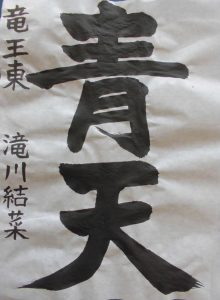 青天
竜王東 滝川結菜